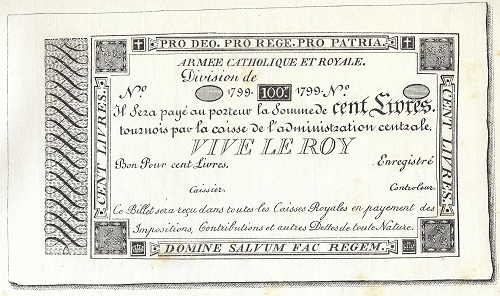 PRO DEO. PRO REGE. PRO PATRIA.
ARMÉE CATHOLIQUE ET ROYALE.
Division de
Nº 1799. 100# 1799. Nº
Il Sera payé au porteur la Somme de cent Livres.
tournois par la caisse de l'administration centrale.
VIVE LE ROY
Bon Pour cent Livres. Enregistré
Caissier. Controleur.
Ce Billet sera reçu dans toutes les Caisses Royales en payement des
Impositions, Contributions et autres Dettes de toute Nature.
DOMINE SALVUM FAC REGEM.
CENT LIVRES.
CENT LIVRES.